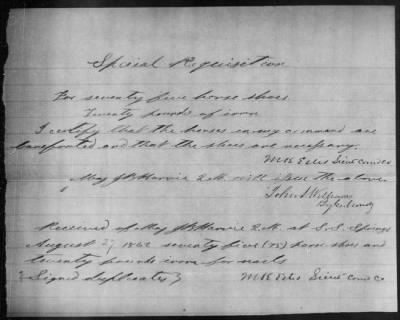 Special Requisition
For seventy five horse shoes
Twenty pounds of iron
I certify that the horses in my command are
barefooted and that the shoes are necessary.
Lieut Comd Co
Maj Q.M. will issue the above
John S Williams
Received of Maj Q.M. at S.S. Springs
August 27 1862 seventy five (75) horse shoes and
twenty pounds iron for nails
(Signed duplicates) Lieut Comd Co